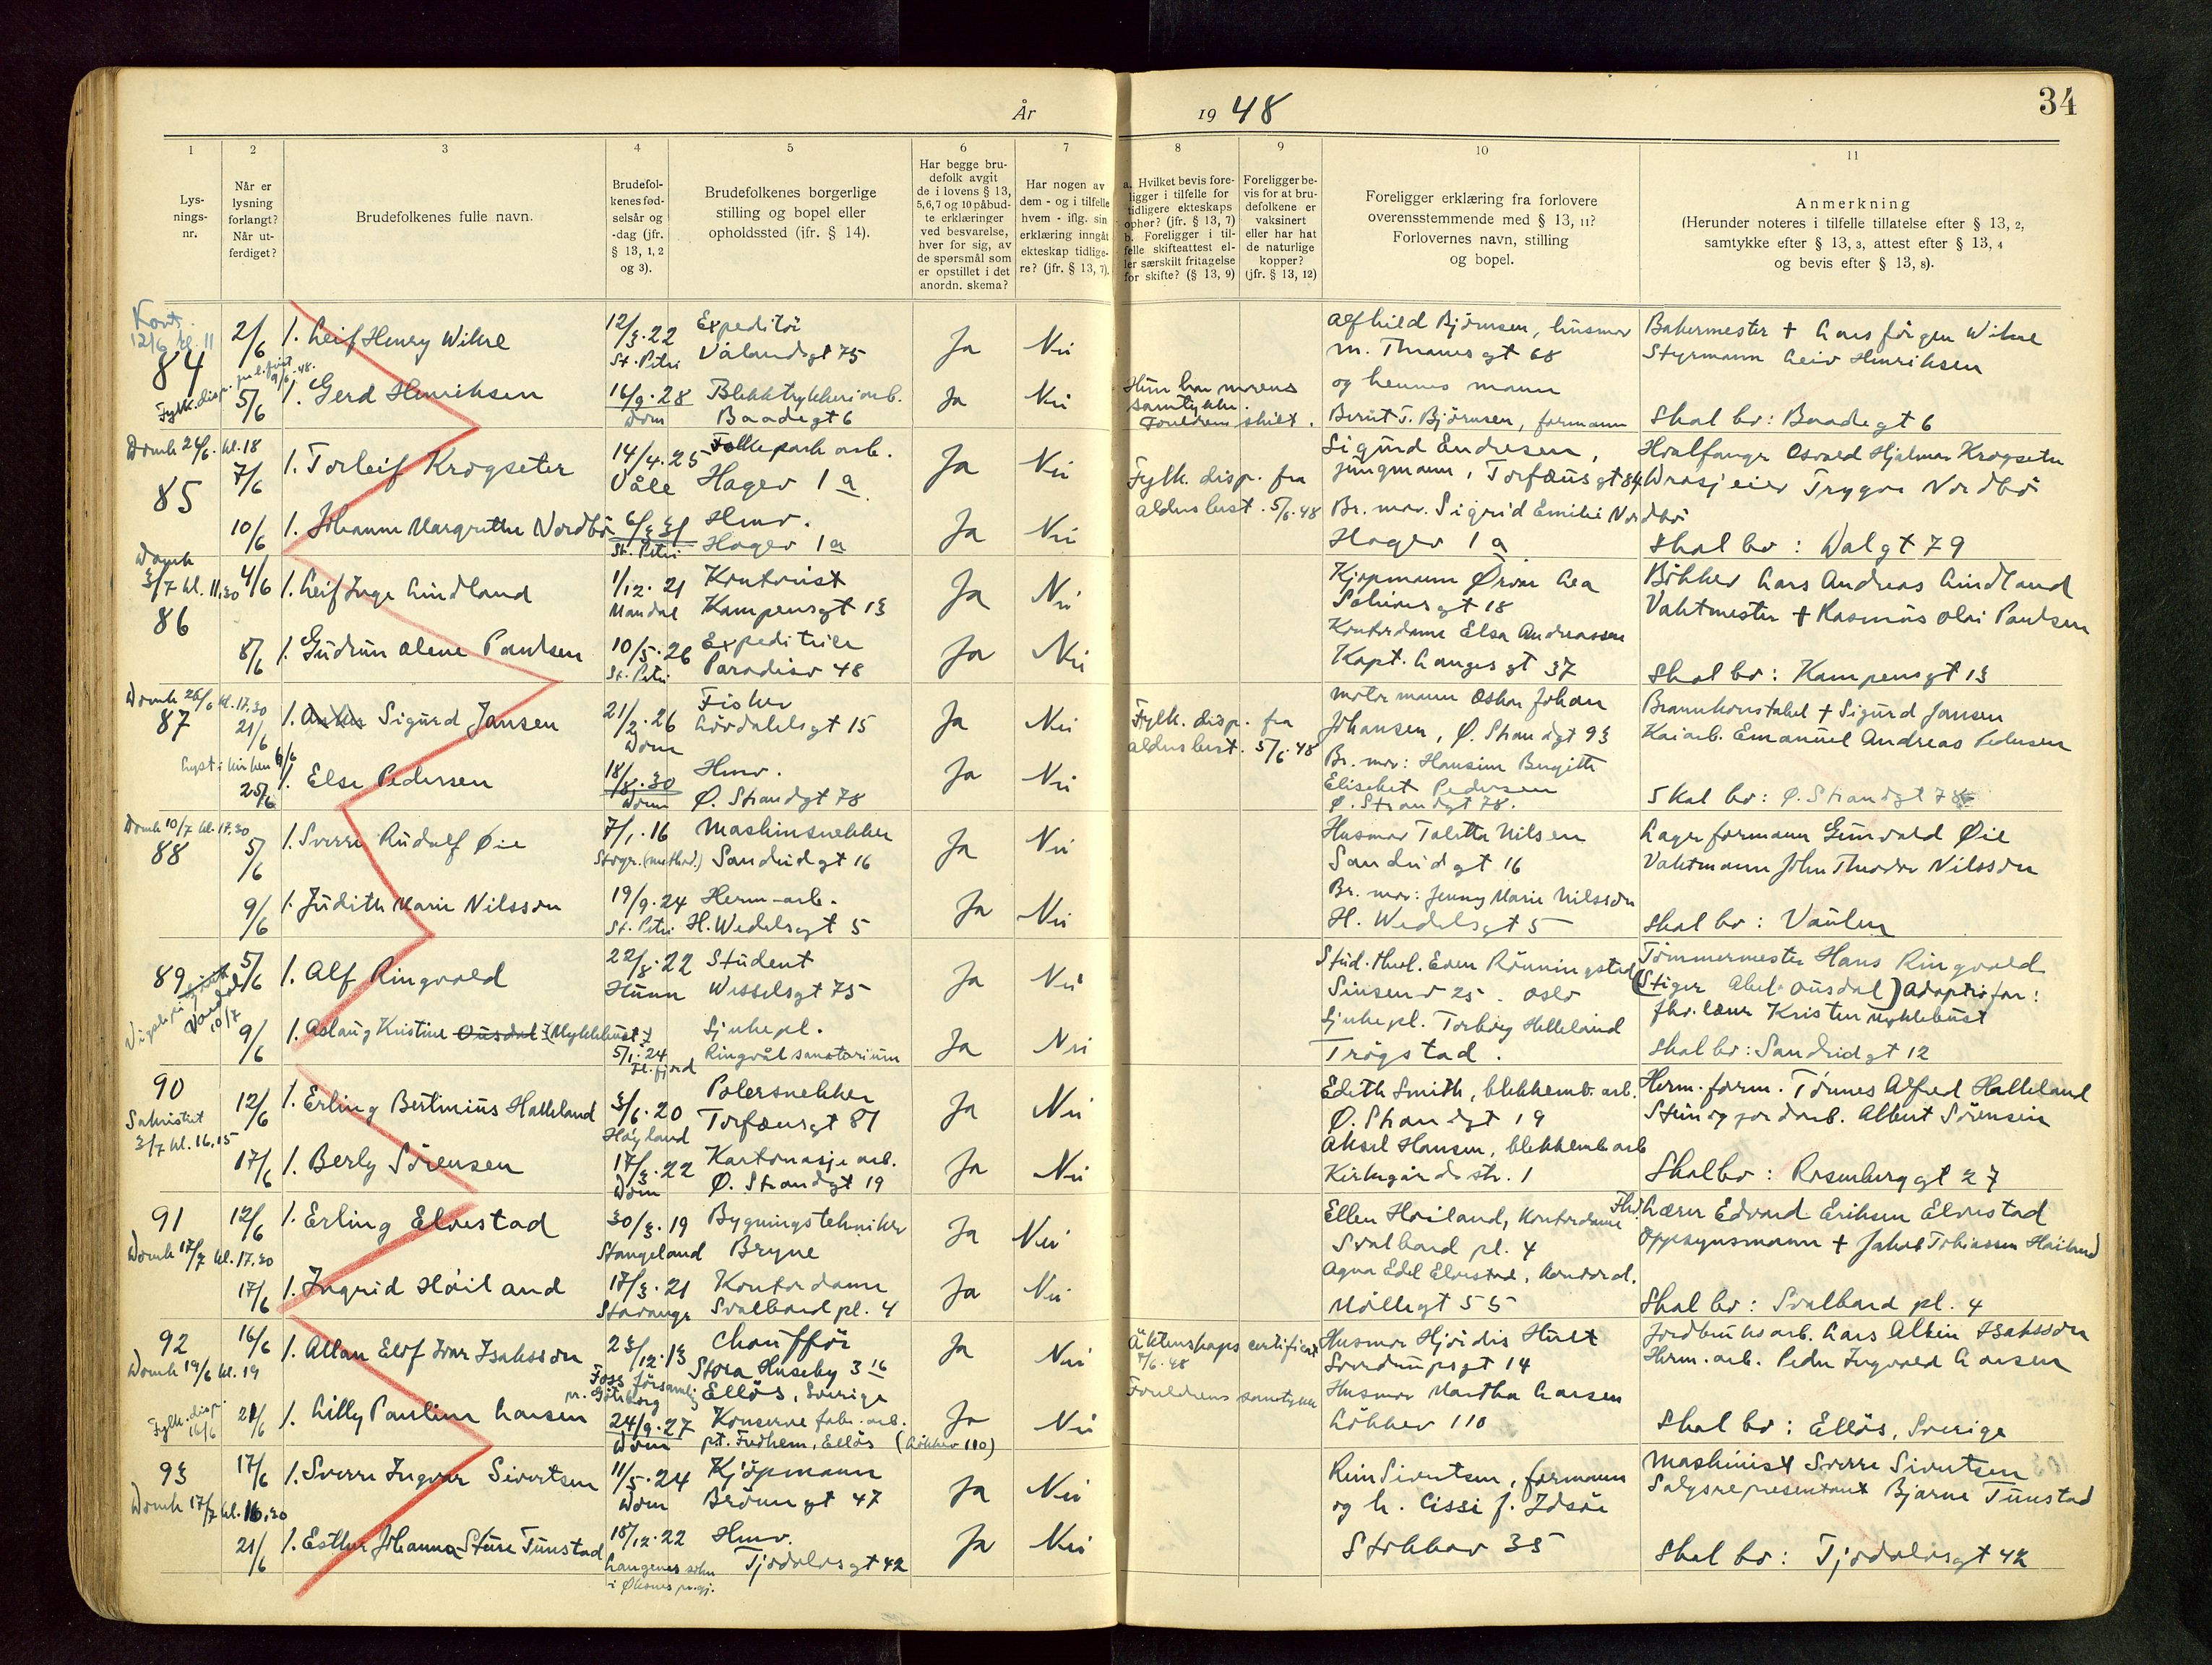 34
År 1948
1
2
3
4
5
6
7
8
9
10
11
Lys-
nings-
nr.
Når er
lysning
forlangt?
Når ut-
ferdiget?
Brudefolkenes fulle navn.
Brudefol-
kenes fød-
selsår og
-dag (jfr.
§ 13, 1, 2
og 3).
Brudefolkenes borgerlige
stilling og bopel eller
opholdssted (ifr. § 14).
Har begge bru-
defolk avgit
de i lovens § 13,
5,6,7 og 10 påbud-
te erklæringer
ved besvarelse,
hver for sig, av
de spørsmål som
er opstillet i det
anordn. skema?
Har nogen av
dem - og i tilfelle
hvem - iflg. sin
erklæring inngåt
ekteskap tidlige-
re? (jfr. § 13, 7).
a. Hvilket bevis fore-
ligger i tilfelle for
tidligere ekteskaps
ophør? (jfr. § 13, 7)
b. Foreligger i til-
felle skifteattest el-
ler særskilt fritagelse
for skifte? (§ 13, 9)
Foreligger be-
vis for at bru-
defolkene er
vaksinert
eller har hat
de naturlige
kopper?
(jfr. § 13, 12)
Foreligger erklæring fra forlovere
overensstemmende med § 13, 11?
Forlovernes navn, stilling
og bopel.
Anmerkning
(Herunder noteres i tilfelle tillatelse efter § 13, 2,
samtykke efter § 13, 3, attest efter § 13, 4
og bevis efter § 13, 8).
Kont.
12/6 kl. 11
84
2/6
1. Leif Henry Wikre
12/3.22
St. Petri
Expeditør
Vålandsgt 75
Ja
Nei
Alfhild Bjørnsen, husmor
m. Thranesgt 68
Bakermester + Lars Jörgen Wikre
Styrmann Leiv Henriksen
Fylk. disp.
9/6-48.
5/6
1. Gerd Henriksen
16/9.28
Dom
Blekktrykkeriarb.
Baadegt 6
Ja
Nei
Hun har morens
samtykke.
Foreldrene skilt.
og hennes mann
Bernt T. Bjørnsen, formann
Skal bo: Baadegt 6
Domk 26/6. kl. 18
85
7/6
1. Torleif Krogseter
14/4.25
Våle
Folkepark arb.
Hagev 1a
Ja
Nei
Fylk. disp. fra
alderslest. 5/6.48
Sigurd Endresen,
jungmann, Torfæusgt 84
Hvalfanger Osvald Hjalmar Krogseter
Drosjeeier Trygve Nordbö
10/6
1. Johanne Margrethe Nordbö
6/3 31
St. Petri
Hmv.
Hagev 1a
Ja
Nei
Br. mor. Sigrid Emilie Nordbö
Hagev 1a
Skal bo: Dalgt 79
Domk
3/7 kl. 11,30
86
4/6
1. Leif Inge Lindland
1/12.21
Mandal
Kontorist
Kampensgt 13
Ja
Nei
Kjøpmann Ørvar Lea
Solveies gt 18
Bökker Lars Andreas Lindland
Vaktmester + Rasmus Olai Paulsen
8/6
1. Gudrun Olene Paulsen
10/5.26
St. Petri
Expeditrice
Paradisv 48
Ja
Nei
Kontordame Elsa Andreassen
Kapt. Langes gt 37
Skal bo: Kampensgt 13
Domk 26/6 kl. 17,30
87
21/6
1. Sigurd Jansen
21/2.26
Dom
Fisker
Lövdahlsgt 15
Ja
Nei
Fylk. disp. fra
alderslest. 5/6.48
Motormann Oskar Johan
Johansen, Ø. Strandgt 93
Brannkonstabel + Sigurd Jansen
Kaiarb. Emanuel Andreas Pedersen
Lyst i kirken 6/6
25/6
1. Else Pedersen
18/8.30
Dom
Hmv.
Ø. Strandgt 78
Ja
Nei
Br. mor: Hansine Bergitte
Elisabet Pedersen
Ø. Strandgt 78.
Skal bo: Ø. Strandgt 78
Domk 10/7 kl. 17.30
88
5/6
1. Sverre Rudolf Øie
7/1.16
Stvgr. (method.)
Maskinsnekker
Sandeidgt 16
Ja
Nei
Husmor Talette Nilsen
Sandeidgt 16
Lagerformann Gunvald Øie
Vaktmann John Theodor Nilsson
9/6
1. Judith Marie Nilsson
19/9.24
St. Petri
Herm-arb.
H. Wedelsgt 5
Ja
Nei
Br. mor: Jenny Marie Nilsson
H. Wedelsgt 5
Skal bo: Vaulen
89
5/6
1. Alf Ringvold
22/8.22
Hunn
Student
Wesselsgt 75
Ja
Nei
Stud. theol. Even Rønningstad
Sinsenv 25. Oslo
Tömmermester Hans Ringvold
(Stiger Abel Ousdal) Adoptivfar:
10/7
9/6
1. Aslaug Kristine Ousdal (Myklebust)
5/1.24
Sjukepl.
Ringvål sanatorium
Ja
Nei
Sjukepl. Torborg Helleland
Trögstad.
fhv. lærer Kristen Myklebust
Skal bo: Sandeidgt 12
90
Sakristiet
3/7 kl. 16,15
12/6
1. Erling Bertinius Halleland
3/6.20
Høyland
Polersnekker
Torfæusgt 81
Ja
Nei
Edith Smith, blekkemb. arb.
Ø. Strandgt 19
Herm. form. Tönnes Alfred Halleland
Stein og jordarb. Albert Sörensen
17/6
1. Berly Sörensen
17/3.22
Dom
Kartonasje arb.
Ø. Strandgt 19
Ja
Nei
Aksel Hansen, blekkemb arb
Kirkegårdsstr. 1
Skal bo: Rosenberggt 27
91
Domk 17/7 kl. 17.30
12/6
1. Erling Elvestad
30/3.19
Stangeland
Bygningstekniker
Bryne
Ja
Nei
Ellen Høiland, Kontordame
Svalbard pl. 4
Fhv. Lærer Edvard Eriksen Elvestad
Oppsynsmann + Jakob Tobiassen Høiland
17/6
1. Ingrid Höiland
17/3.21
Stavanger
Kontordame
Svalbard pl. 4
Ja
Nei
Agna Edel Elvestad, kontord.
Möllegt 55
Skal bo: Svalbard pl. 4
92
Domk 19/6 kl. 19
16/6
1. Allan Elof Ivar Isaksson
23/12.13
Foss församling
pr. Göteborg
Chaufför
Stora Huseby 3 16
Ellös, Sverige
Ja
Nei
Äktenskaps certifikat
7/6.48
Husmor Hjördis Hult
Sverdrupsgt 14
Jordbruksarb. Lars Albin Isaksson
Herm. arb. Peder Ingvald Larsen
Fylk. disp.
16/6
21/6
1. Lilly Pauline Larsen
24/9.27
Dom
Konserve fabr. arb.
pt. Fredhem, Ellös (Lökkev 110)
Ja
Nei
Foreldrenes samtykke
Husmor Martha Larsen
Lökkev 110
Skal bo: Ellös, Sverige
93
Domk 17/7 kl. 16,30
17/6
1. Sverre Ingvar Sivertsen
11/5.24
Dom
Kjöpmann
Brönngt 47
Ja
Nei
Rein Sivertsen, formann
og h. Cissi f. Idsöe
Maskinist Sverre Sivertsen
Salgsrepresentant Bjarne Tunstad
21/6
1. Esther Johanna Sture Tunstad
18/12.22
Langenes sokn
i Øksnes pr.gj.
Hmv.
Tjodolvsgt 42
Ja
Nei
Stokkav 35
Skal bo: Tjodolvsgt 42